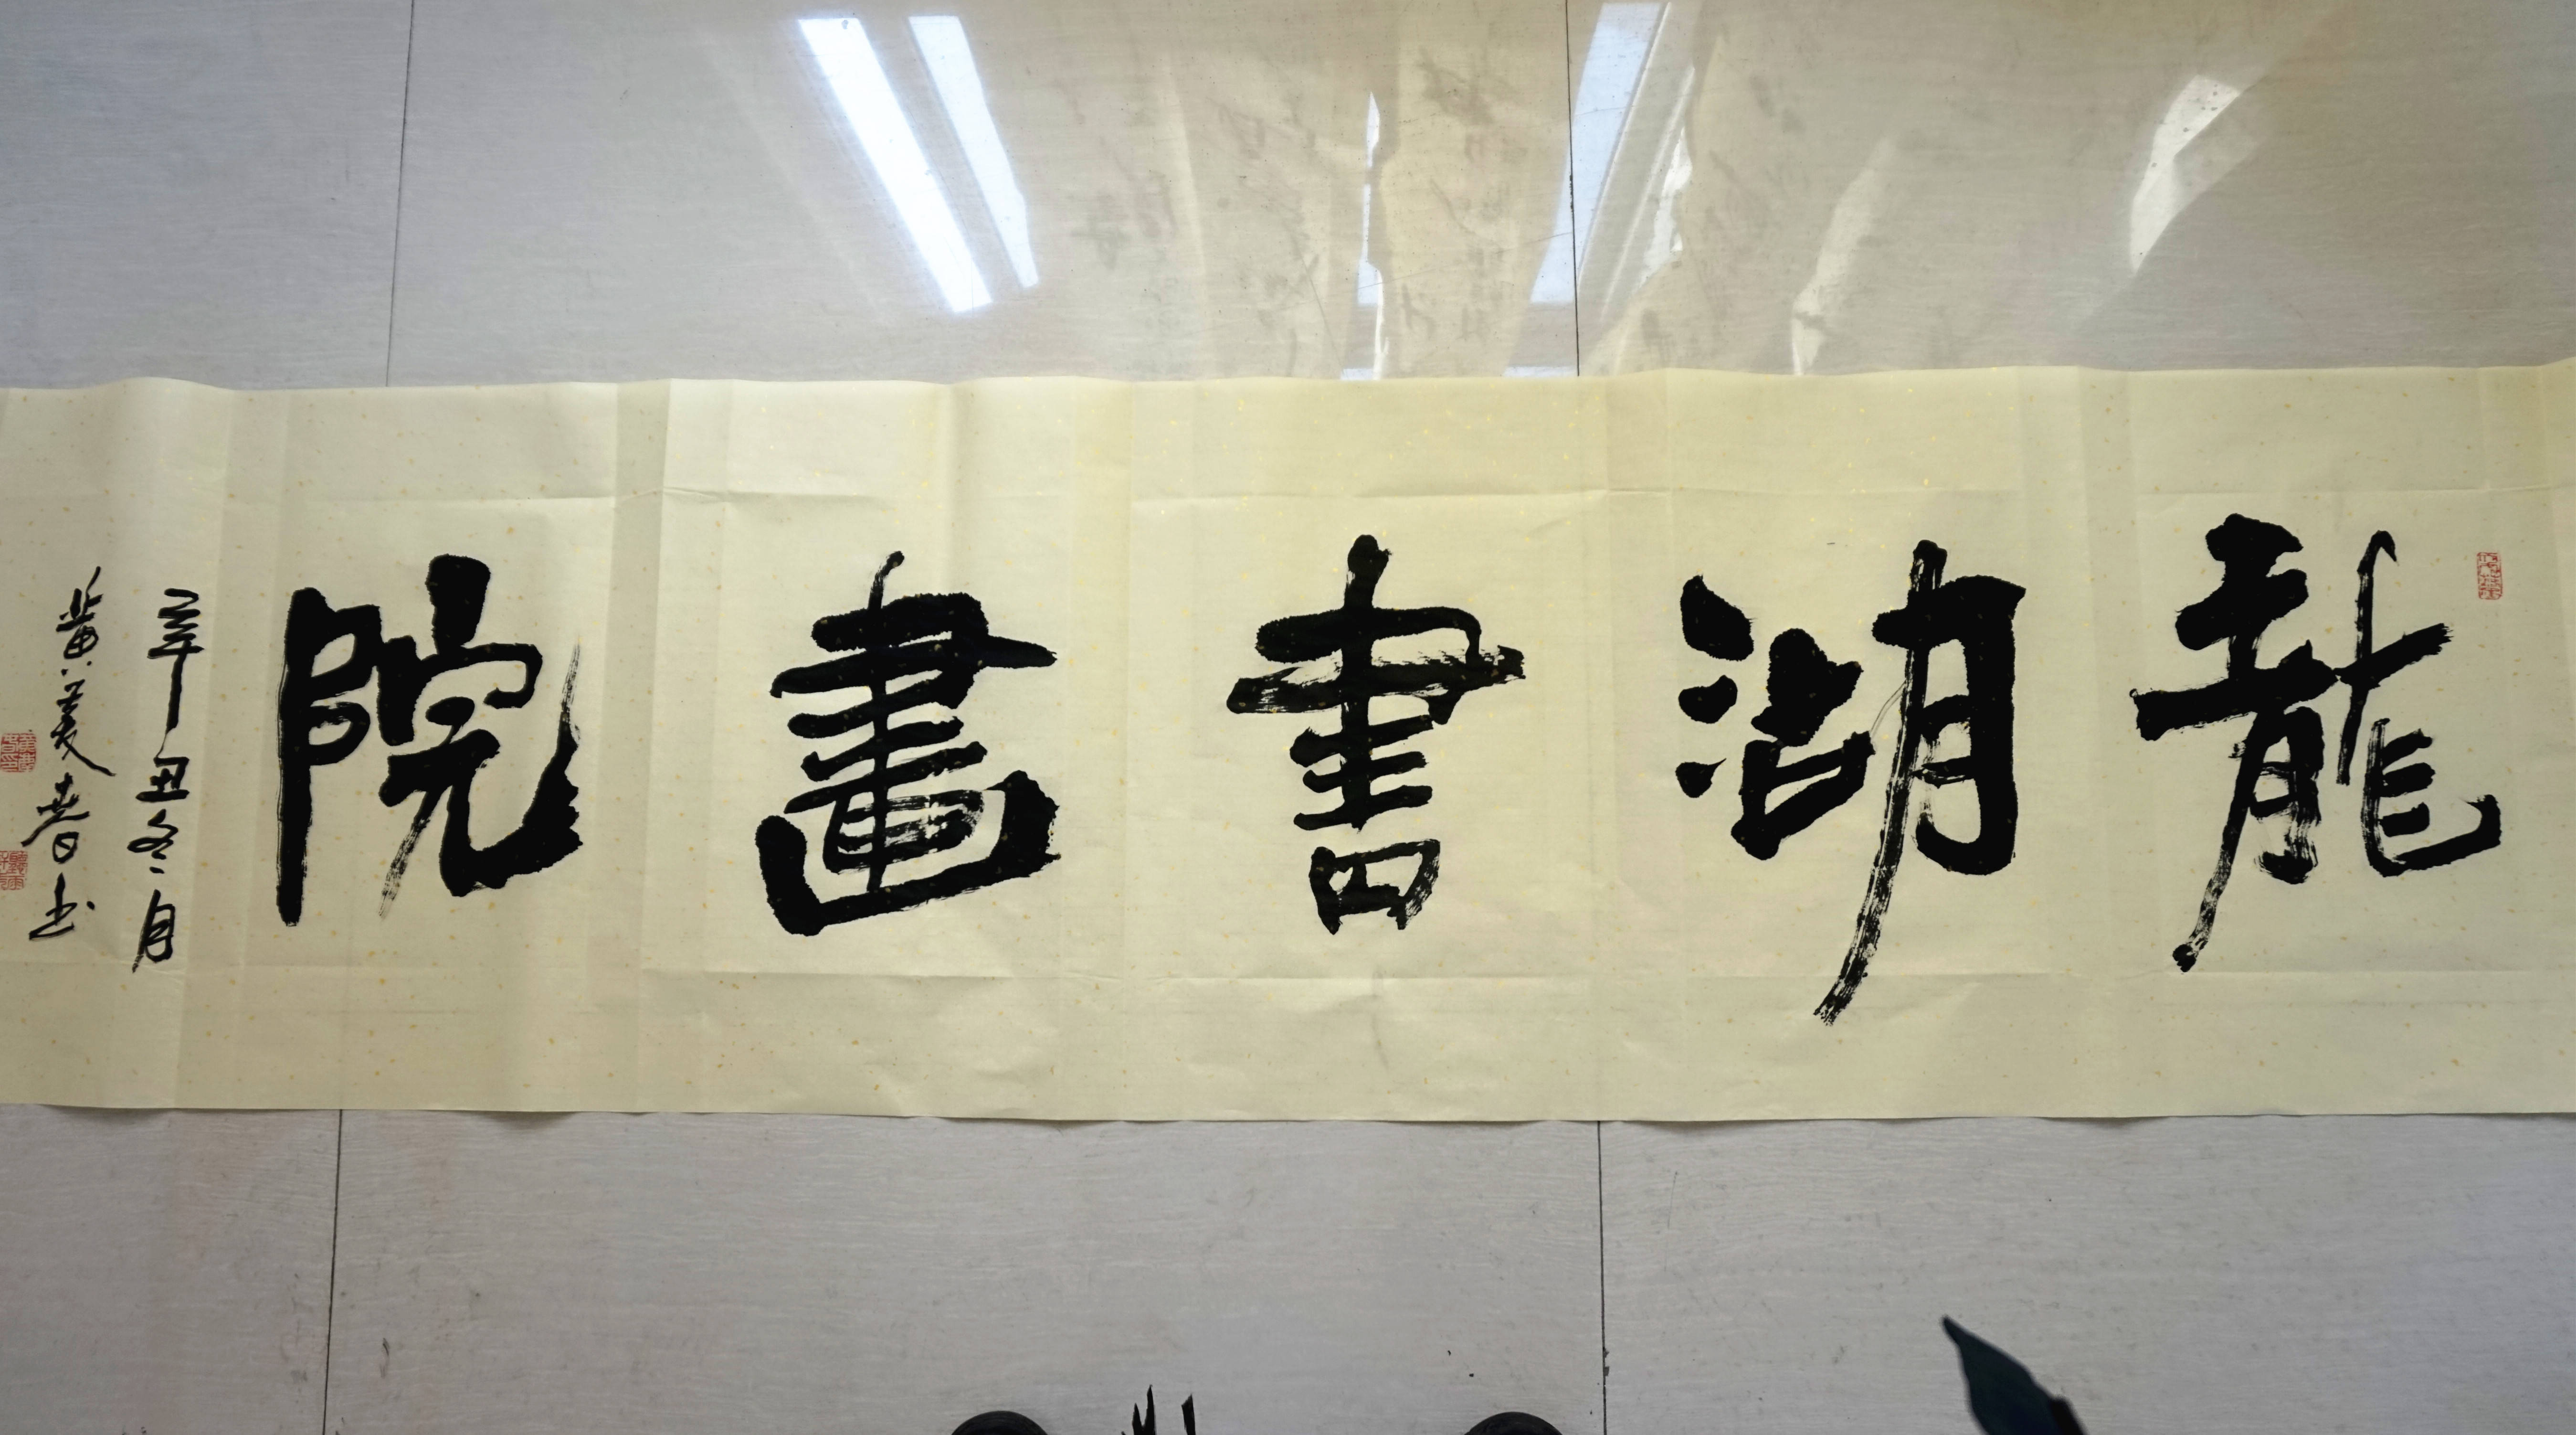 龍湖書畫院
辛丑冬月
黄爱春书